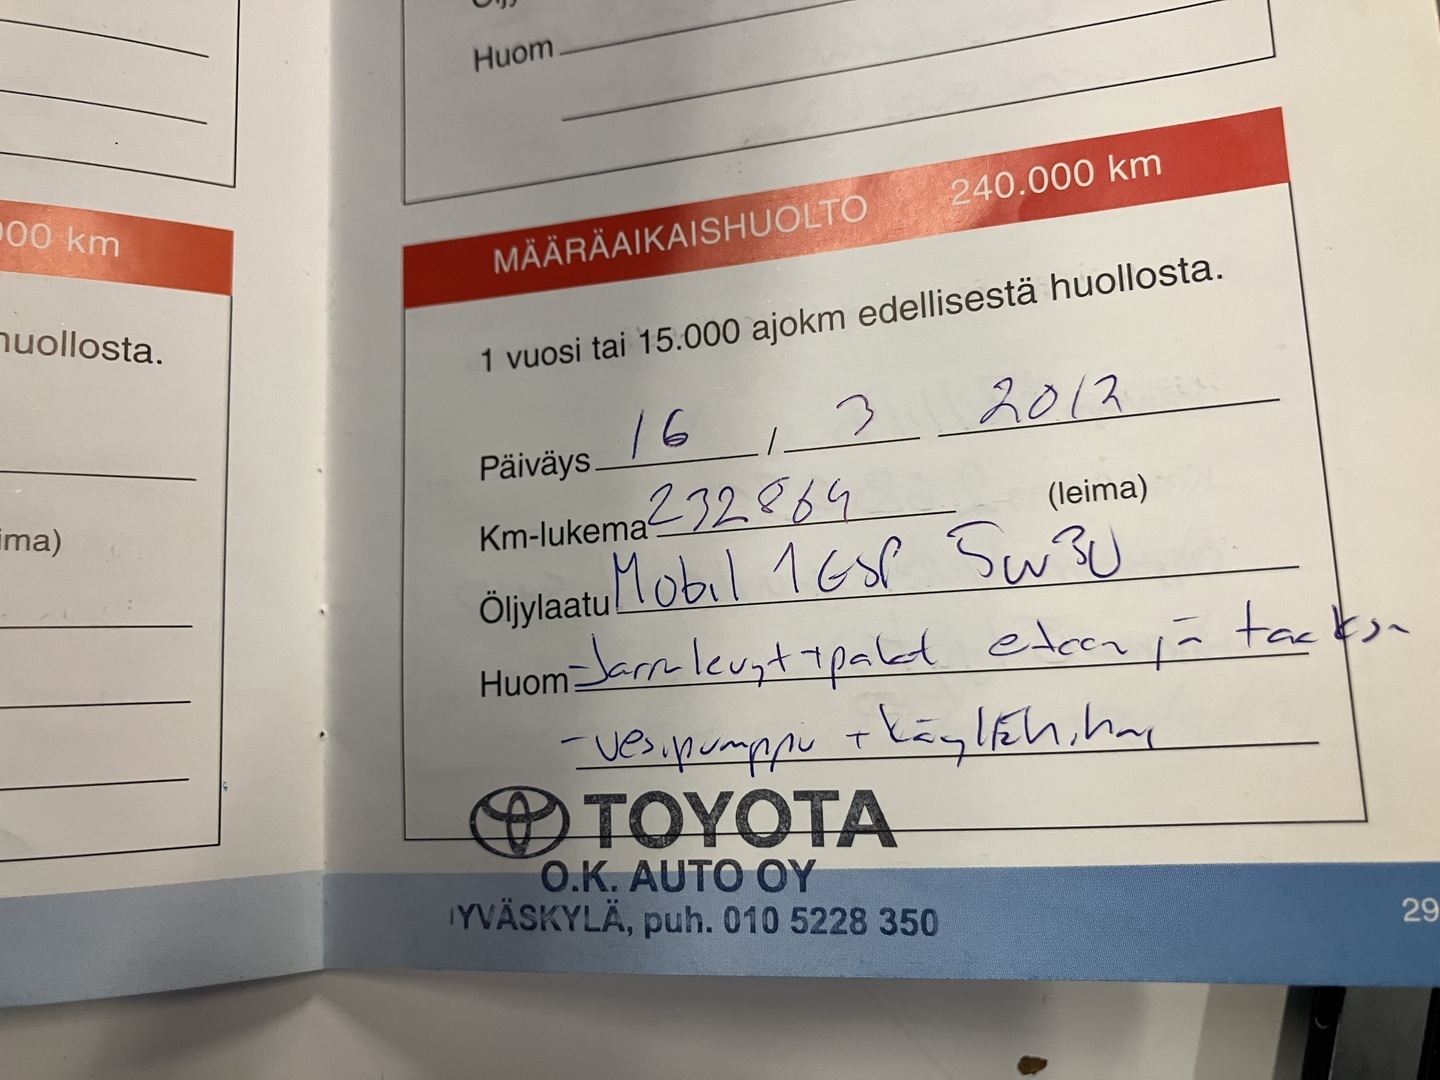 Huom
000 km
huollosta.
MÄÄRÄAIKAISHUOLTO 240.000 km
1 vuosi tai 15.000 ajokm edellisestä huollosta.
Päiväys 16 / 3 2012
Km-lukema 232864 (leima)
Öljylaatu Mobil 1 ESP 5w30
Huom - Jarrulevyt + palat eteen ja taakse
- vesipumppu + käyttöhihna
TOYOTA
O.K. AUTO OY
JYVÄSKYLÄ, puh. 010 5228 350
29